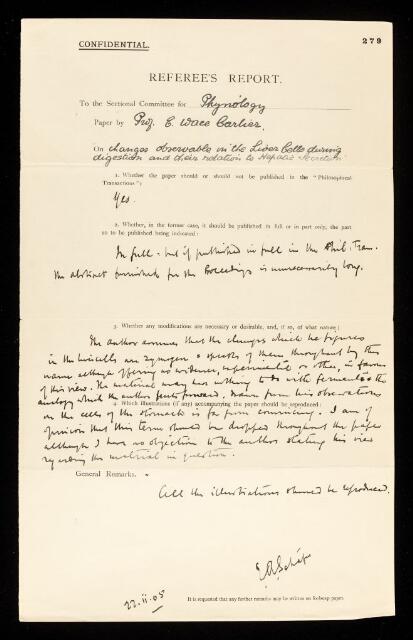 CONFIDENTIAL.
279
REFEREE'S REPORT.
To the Sectional Committee for Physiology
Paper by Prof. E. Wace Carlier.
On changes observable in the Liver Cells during
digestion and their relation to Hepatic Secretion
1. Whether the paper should or should not be published in the "Philosophical
Transactions":
Yes.
2. Whether, in the former case, it should be published in full or in part only, the part
so to be published being indicated:
In full - but if published in full in the Phil. Tran.
the abstract furnished for the Proceedings is unnecessarily long.
3. Whether any modifications are necessary or desirable, and, if so, of what nature:
The author assumes that the changes which he figures
in the liver cells are zymogen & speaks of them throughout by this
name although offering no evidence, experimental or other, in favour
of this view. The material may have nothing to do with ferments & the
analogy which the author puts forward, drawn from his observations
4. Which illustrations (if any) accompanying the paper should be reproduced:
on the cells of the stomach is far from convincing. I am of
opinion that this term should be dropped throughout the paper
although I have no objection to the author stating his view
regarding the material in question.
General Remarks.
All the illustrations should be reproduced.
E.A. Schäfer
22.ii.05
It is requested that any further remarks may be written on foolscap paper.